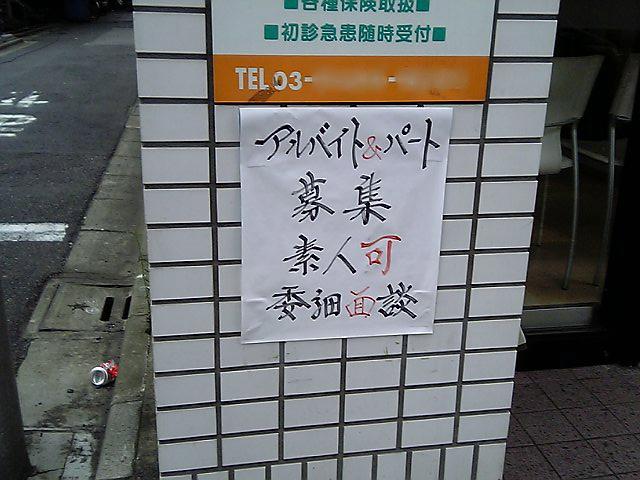 ■各種保険取扱■
■初診急患随時受付■
TEL 03-
アルバイト&パート
募集
素人可
委細面談